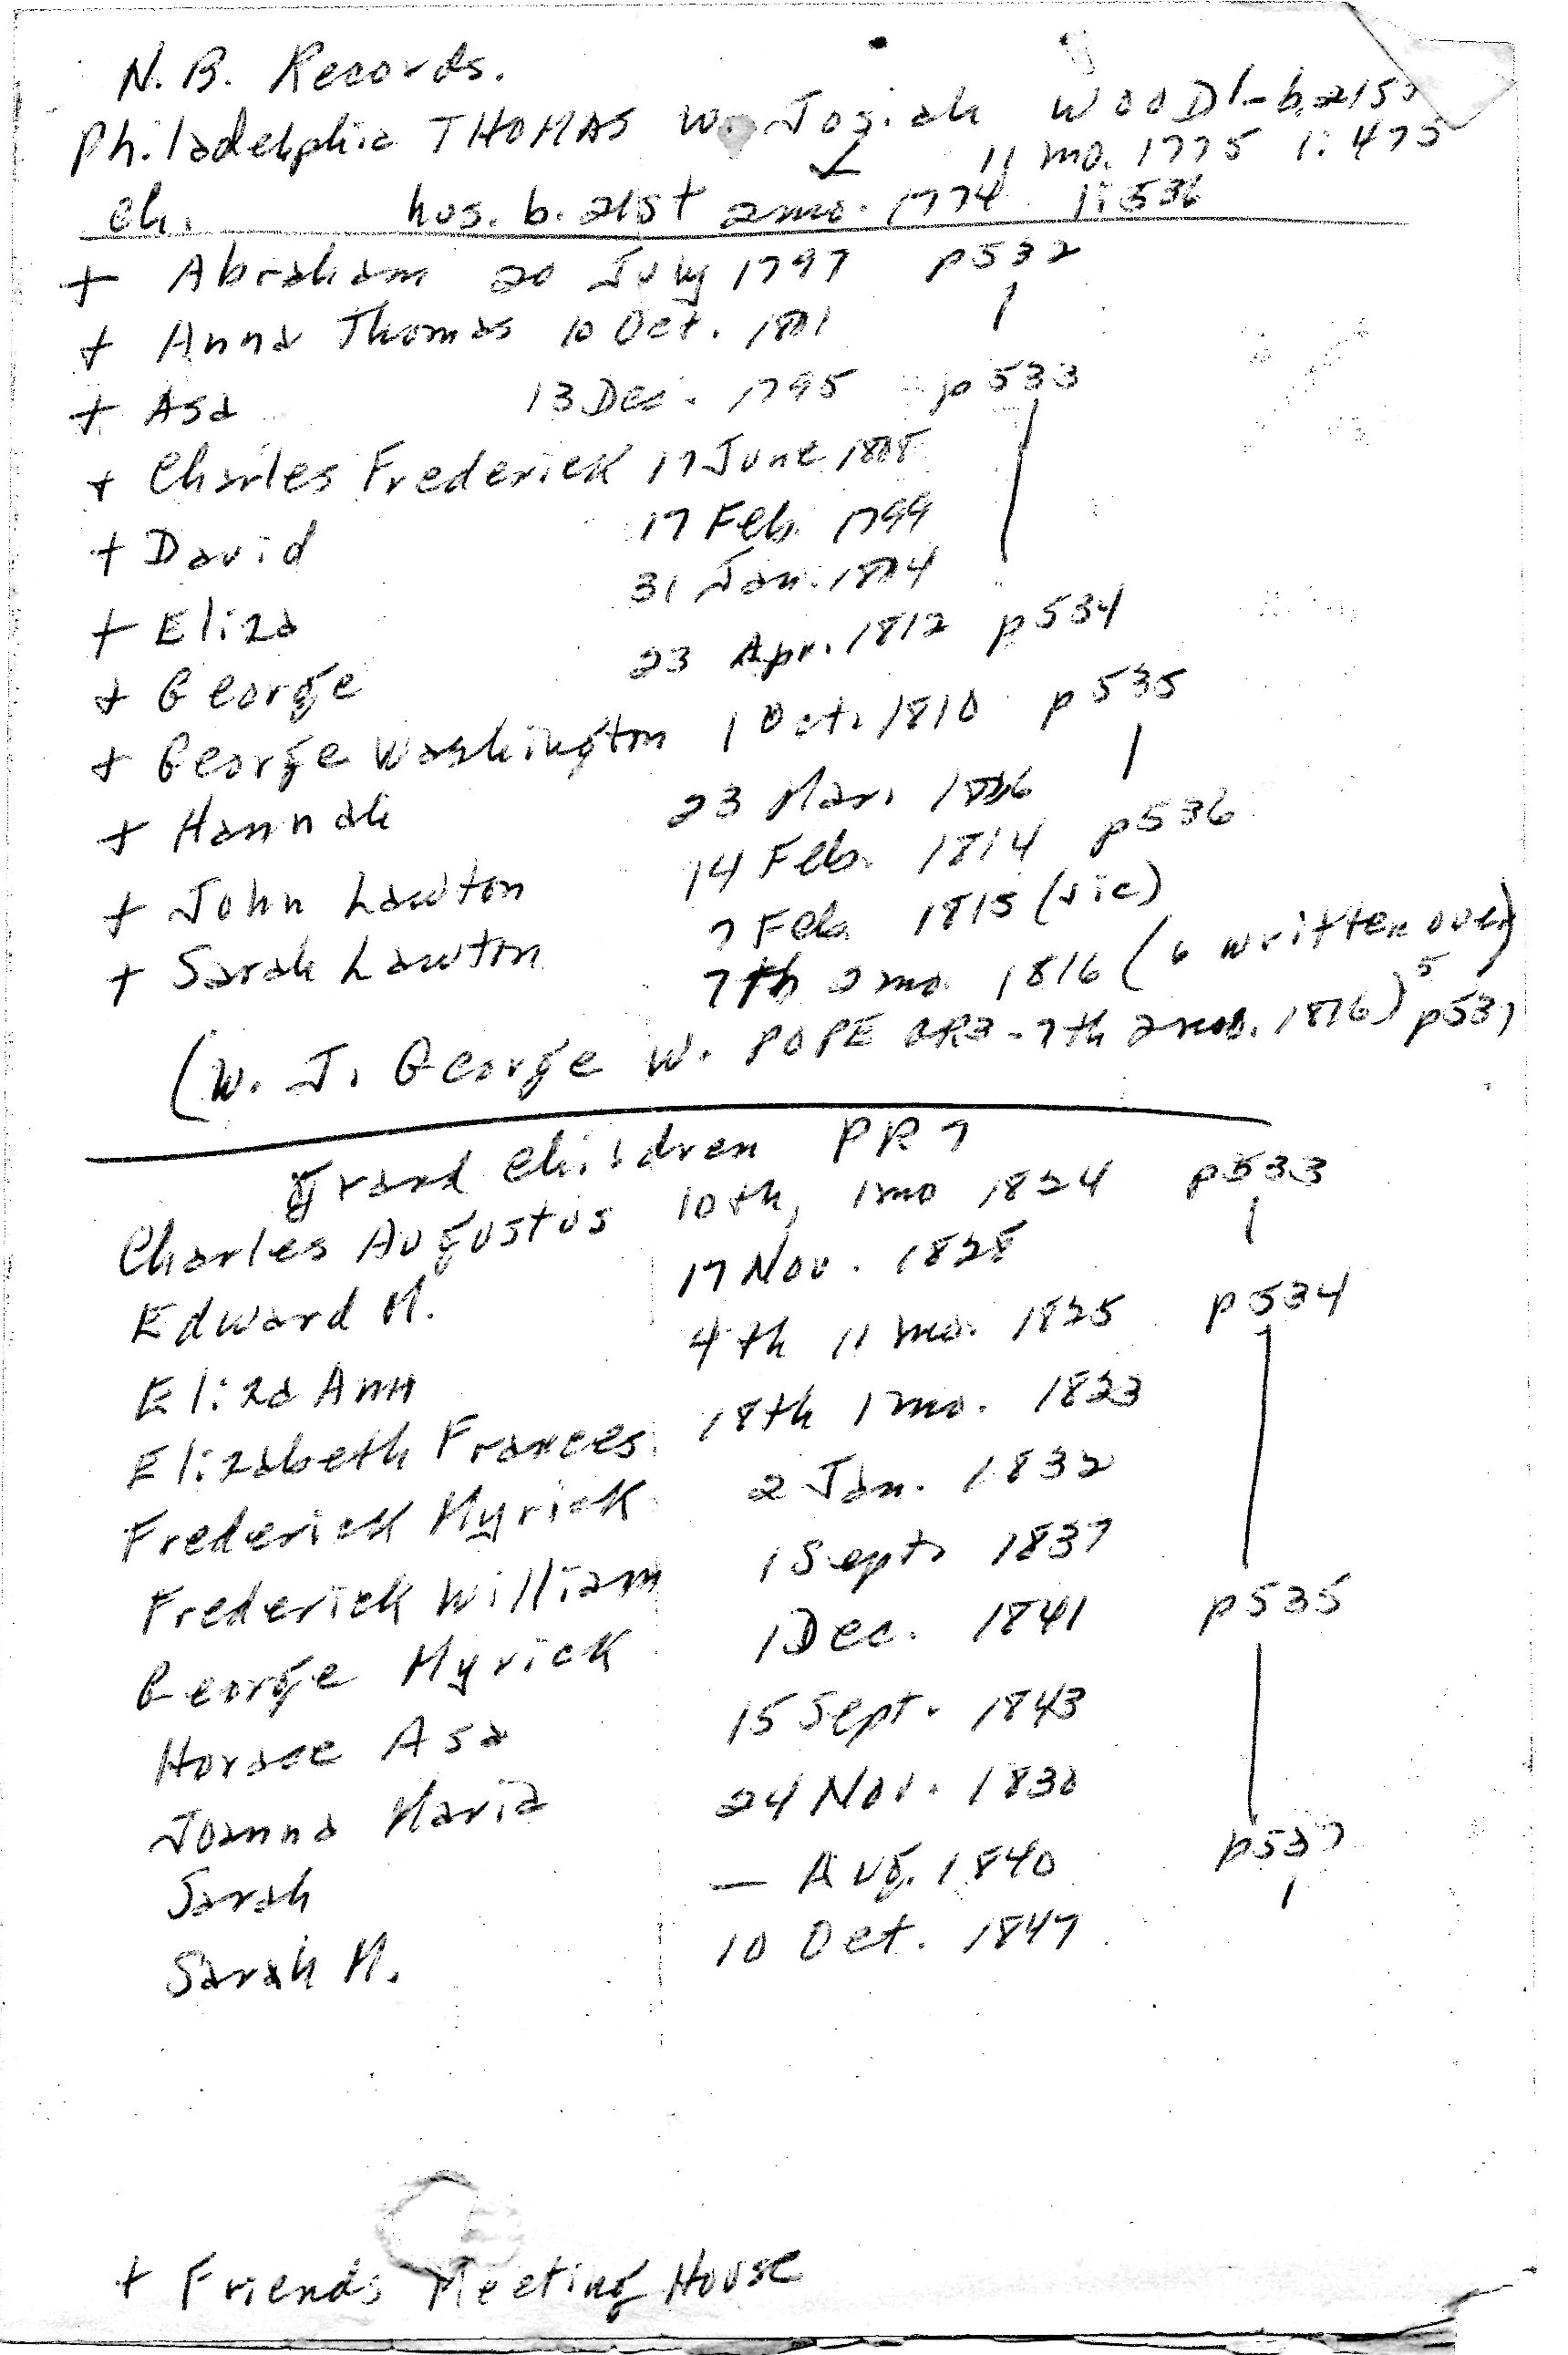 N. B. Records.
Philadelphia THOMAS w. Josiah WOOD 1- b. 21st
11 mo. 1775 1:475
ch. hus. b. 21st 2mo. 1774 1:536
+ Abraham 20 July 1797 p532
+ Anna Thomas 10 Oct. 1801
+ Asa 13 Dec. 1795 p533
+ Charles Frederick 17 June 1808
+ David 17 Feb. 1799
+ Eliza 31 Jan. 1804
+ George 23 Apr. 1812 p534
+ George Washington 1 Oct. 1810 p535
+ Hannah 23 Mar. 1806
+ John Lawton 14 Feb. 1814 p536
+ Sarah Lawton 7 Feb. 1815 (sic)
7th 2 mo. 1816 (6 written over
5)
(W. J. George W. POPE GR3 - 7th 2 mo. 1816) p537
grand children PR 7
Charles Augustus 10th, 1mo 1824 p533
Edward M. 17 Nov. 1828
Eliza Ann 4th 11 mo. 1825 p534
Elizabeth Frances 18th 1 mo. 1823
Frederick Myrick 2 Jan. 1832
Frederick William 1 Sept. 1837
George Myrick 1 Dec. 1841 p535
Horace Asa 15 Sept. 1843
Joanna Maria 24 Nov. 1830
Sarah — Aug. 1840 p537
Sarah M. 10 Oct. 1847
+ Friends Meeting House